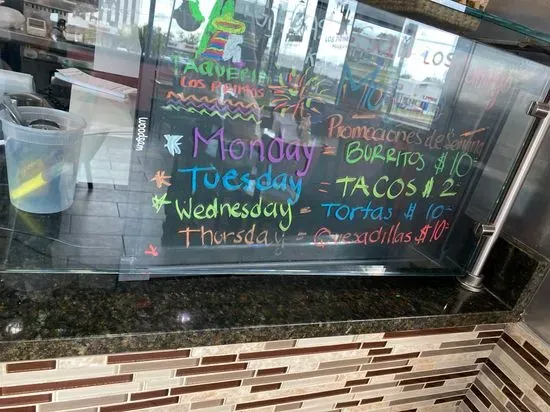 TAQUERIA
LOS
Promociones de Semana
Monday = BURRITOS $10=
Tuesday = TACOS $2=
Wednesday = Tortas $10=
Thursday = Quesadillas $10=
woodpam
LOS